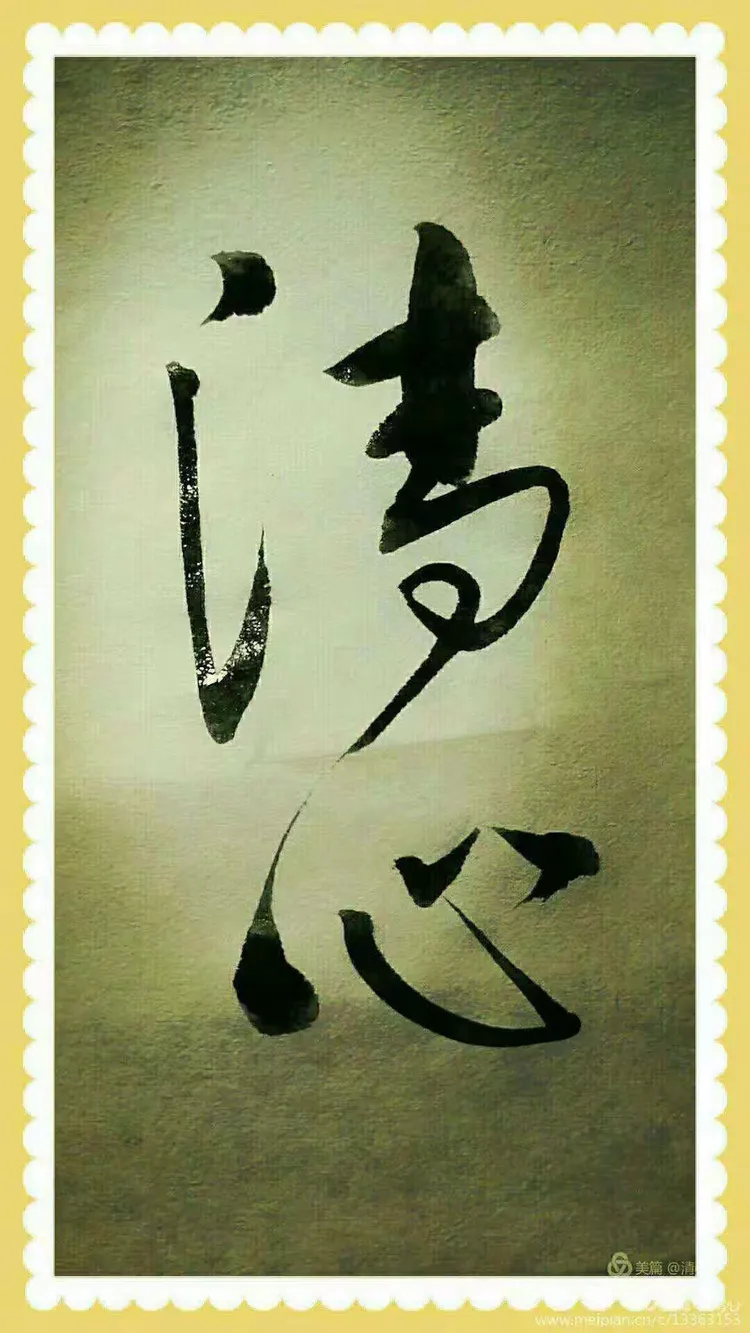 清
心
美篇 @清
www.meipian.cn/c/13363153